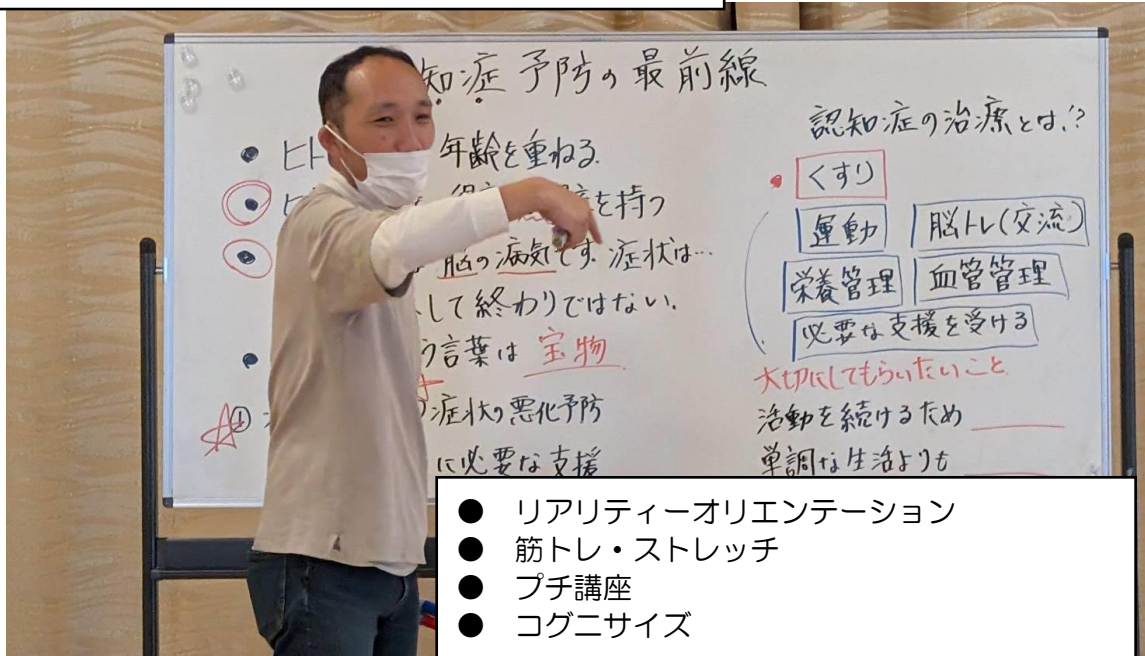 知症予防の最前線
● ヒト 年齢を重ねる.
● ヒ を持つ
● 脳の病気です. 症状は…
して終わりではない.
● う言葉は 宝物
① 症状の悪化予防
に必要な支援
認知症の治療とは!?
● くすり
運動 脳トレ(交流)
栄養管理 血管管理
必要な支援を受ける
大切にしてもらいたいこと
活動を続けるため
単調な生活よりも
● リアリティーオリエンテーション
● 筋トレ・ストレッチ
● プチ講座
● コグニサイズ